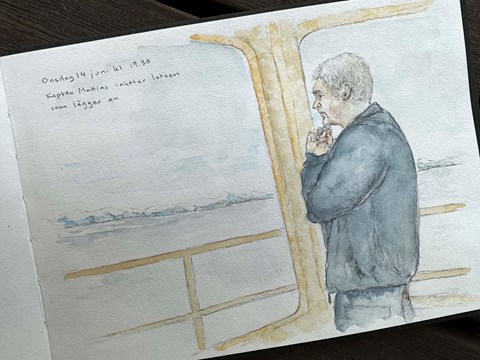 Onsdag 14 juni kl 19.30
Kapten Mattias inväntar lotsen
som lägger an